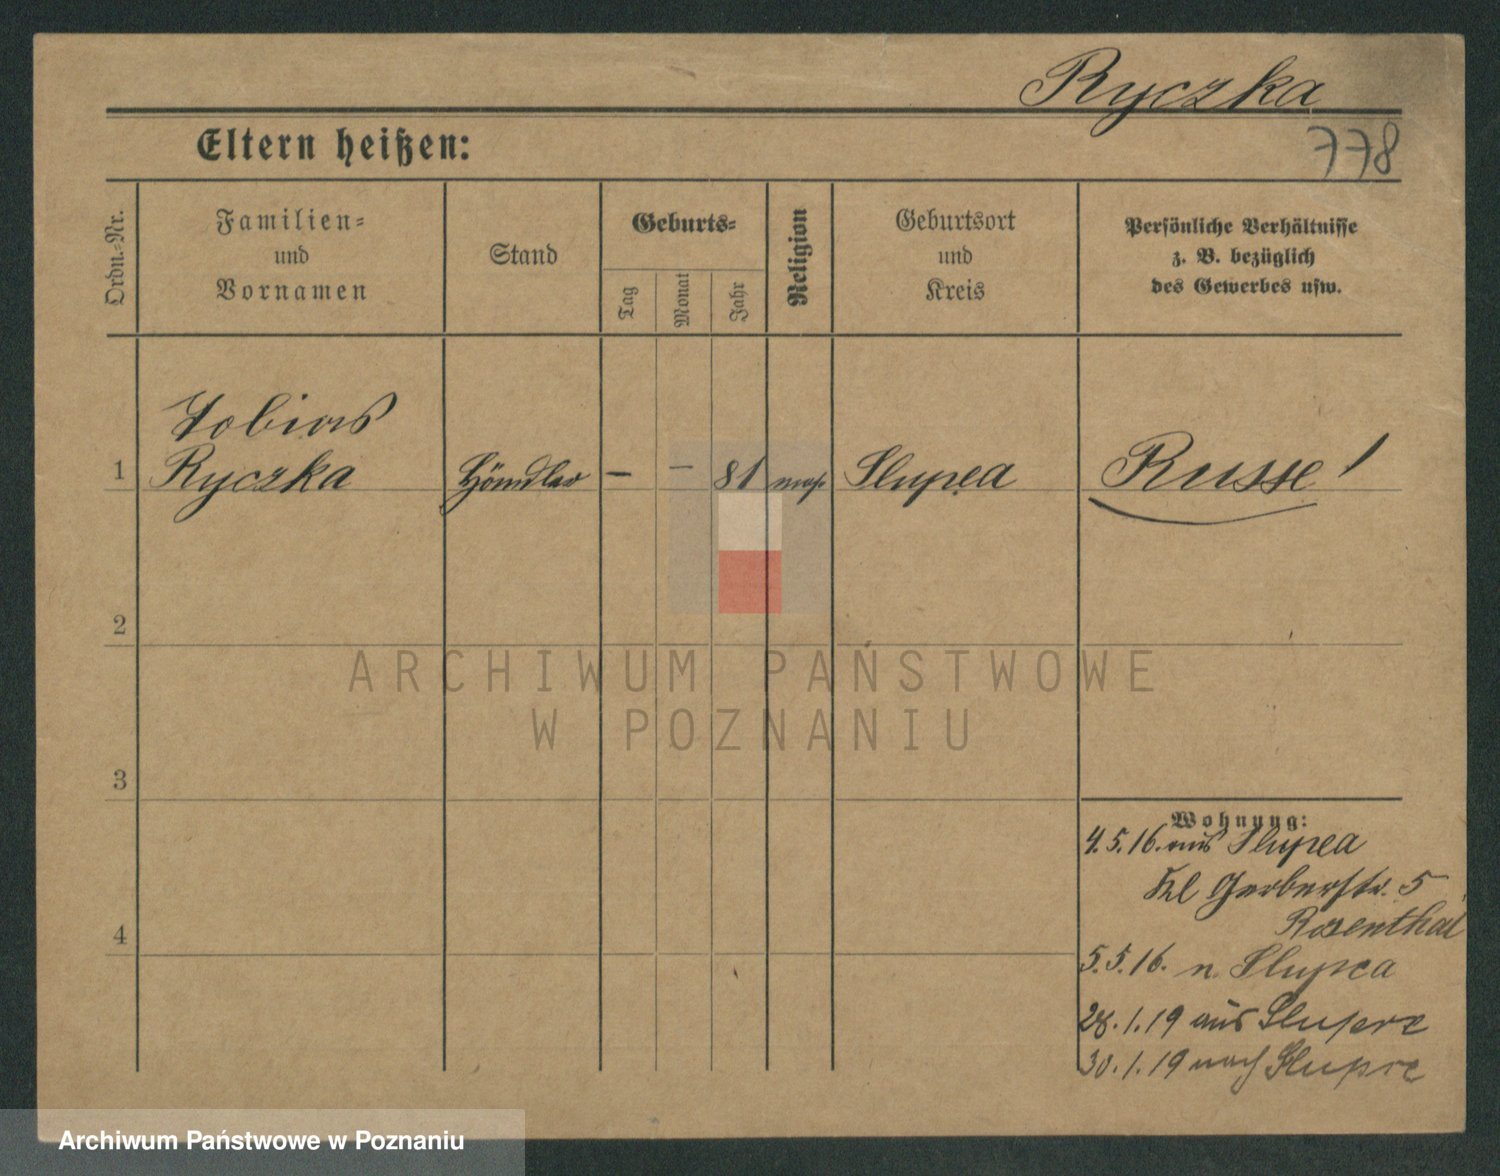 Ryczka
778
Eltern heißen:
Ordn.=Nr.
Familien=
und
Vornamen
Stand
Geburts=
Tag
Monat
Jahr
Religion
Geburtsort
und
Kreis
Persönliche Verhältnisse
z. B. bezüglich
des Gewerbes usw.
Tobias
1 Ryczka Händler — — 81 mos. Slupca Russe!
2
3
4
Wohnung:
4.5.16. aus Slupca
Kl Gerberstr. 5
Rosenthal
5.5.16. n. Slupca
28.1.19 aus Slupce
30.1.19 nach Slupce
ARCHIWUM PAŃSTWOWE
W POZNANIU
Archiwum Państwowe w Poznaniu